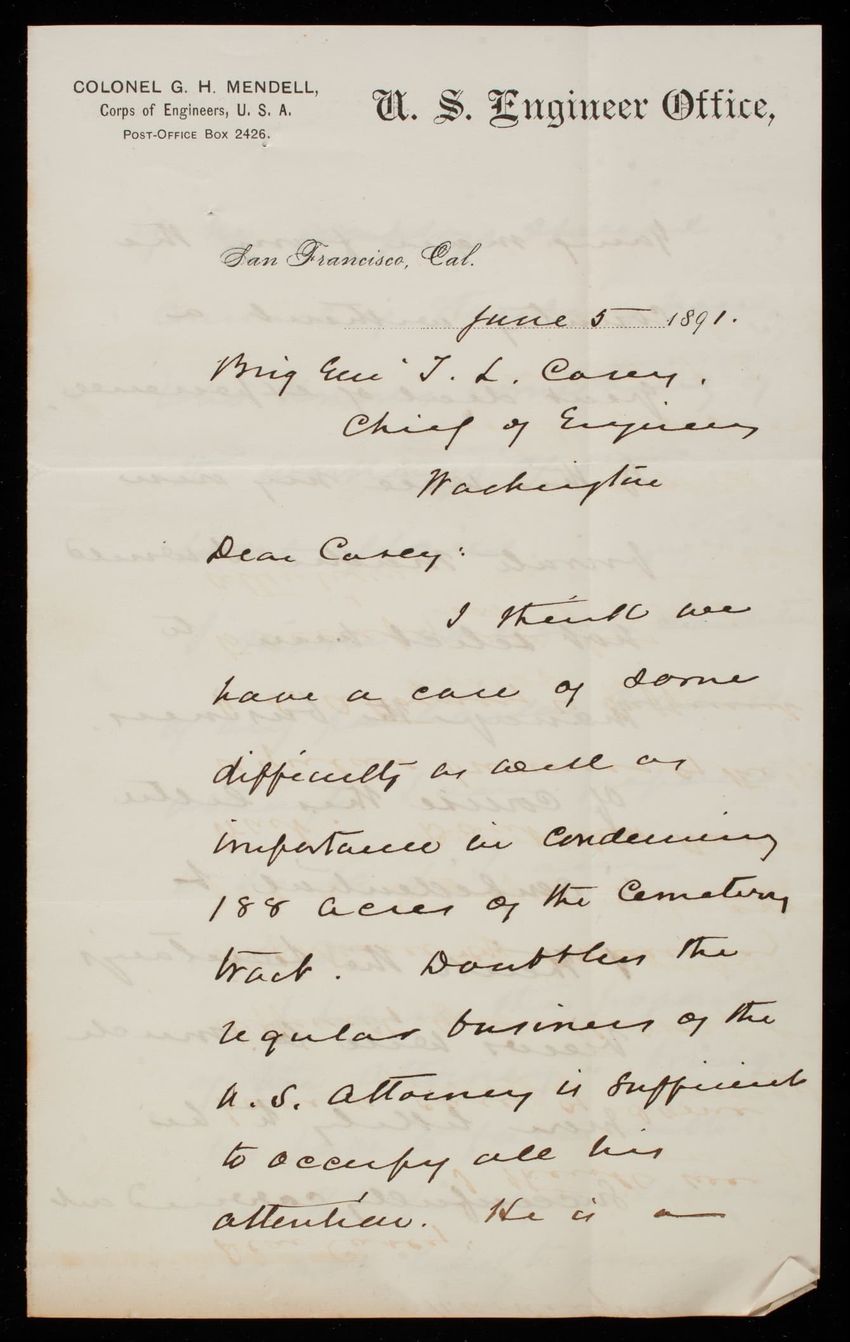 COLONEL G. H. MENDELL,
Corps of Engineers, U. S. A.
POST-OFFICE BOX 2426.
U. S. Engineer Office,
San Francisco, Cal.
June 5 1891.
Brig Gen T. L. Casey.
Chief of Engineers
Washington
Dear Casey:
I think we
have a case of some
difficulty as well as
importance in condemning
188 acres of the Cemetery
tract. Doubtless the
regular business of the
U. S. Attorney is sufficient
to occupy all his
attention. He is a